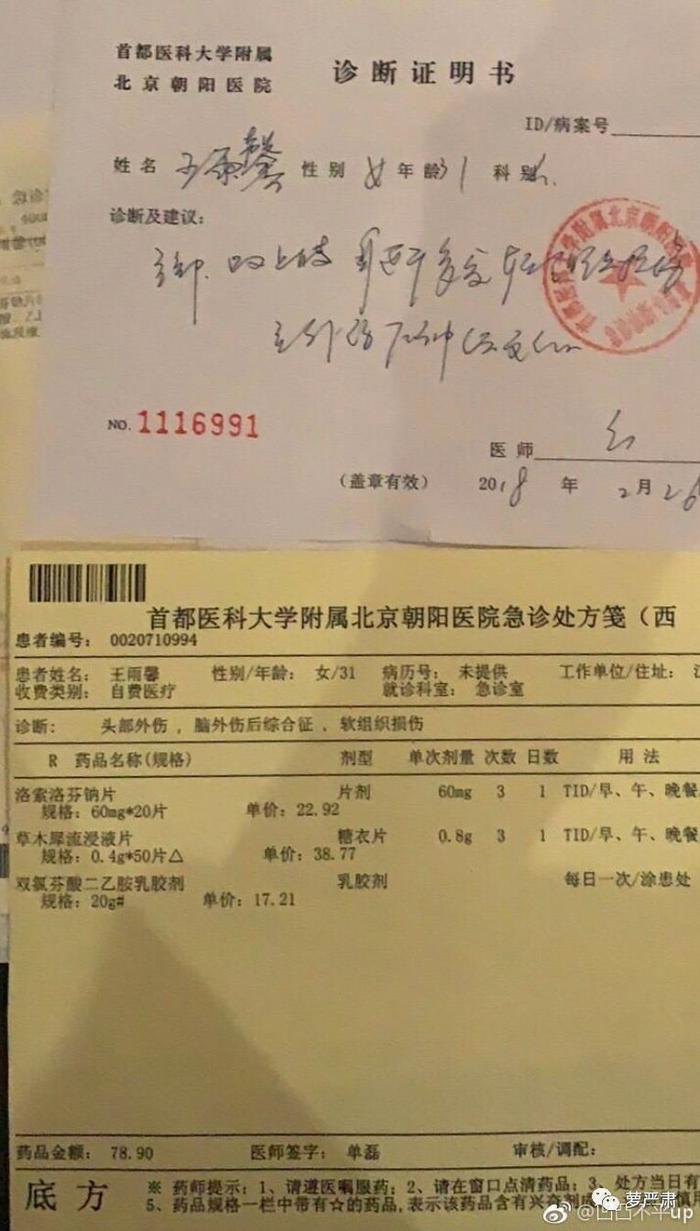 首都医科大学附属
北京朝阳医院
诊断证明书
ID/病案号
姓名 王雨馨 性别 女 年龄 31 科别
诊断及建议:
NO. 1116991
医师
(盖章有效) 2018 年 2月26
首都医科大学附属北京朝阳医院急诊处方笺(西
患者编号: 0020710994
患者姓名: 王雨馨 性别/年龄: 女/31 病历号: 未提供 工作单位/住址:
收费类别: 自费医疗 就诊科室: 急诊室
诊断: 头部外伤,脑外伤后综合征,软组织损伤
R 药品名称(规格) 剂型 单次剂量 次数 日数 用法
洛索洛芬钠片 片剂 60mg 3 1 TID/早、午、晚餐
规格: 60mg*20片 单价: 22.92
草木犀流浸液片 糖衣片 0.8g 3 1 TID/早、午、晚餐
规格: 0.4g*50片△ 单价: 38.77
双氯芬酸二乙胺乳胶剂 乳胶剂 每日一次/涂患处
规格: 20g# 单价: 17.21
药品金额: 78.90 医师签字: 单磊 审核/调配:
底方 ※ 药师提示: 1、请遵医嘱服药; 2、请在窗口点清药品; 3、处方当日有
5、药品规格一栏中带有☆的药品,表示该药品含有兴奋剂
萝严肃
@凹凸不平up